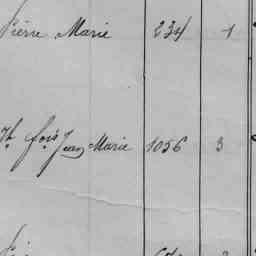 Pierre Marie 234 1
fois Jean Marie 1056 3